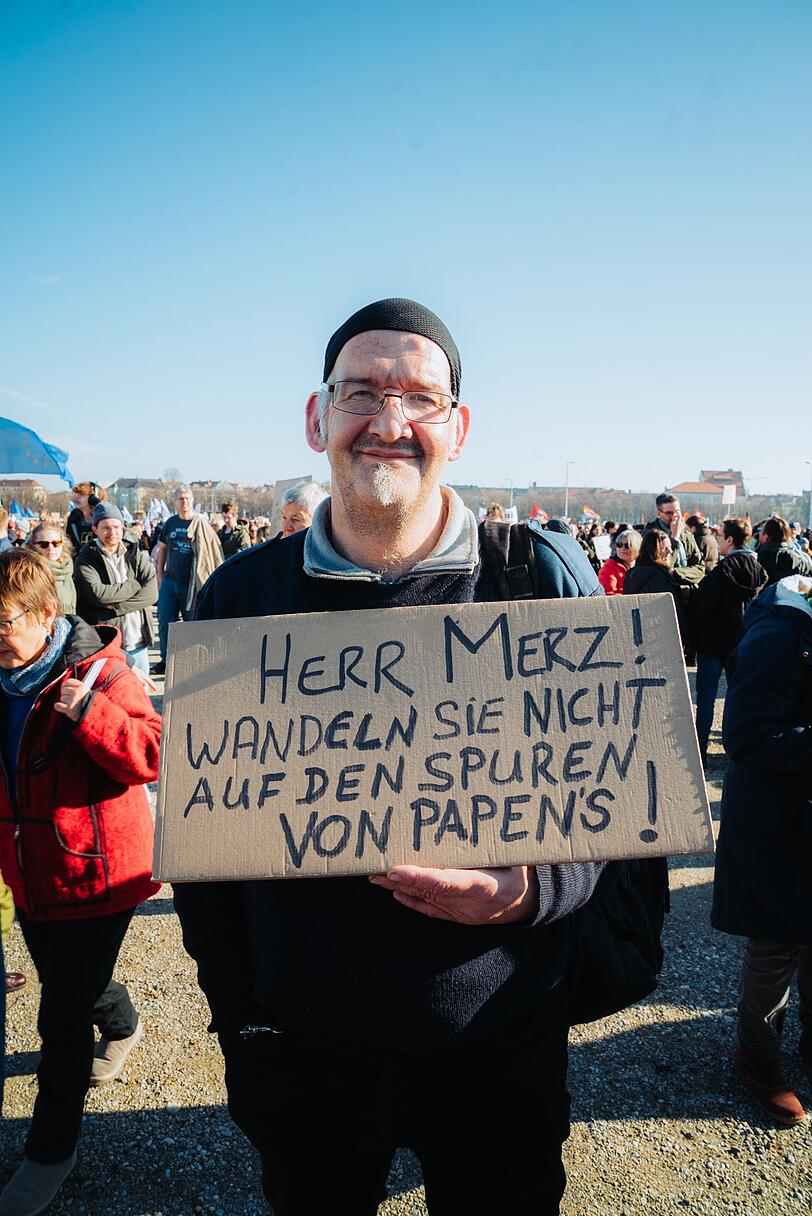 HERR MERZ!
WANDELN SIE NICHT
AUF DEN SPUREN
VON PAPEN'S!